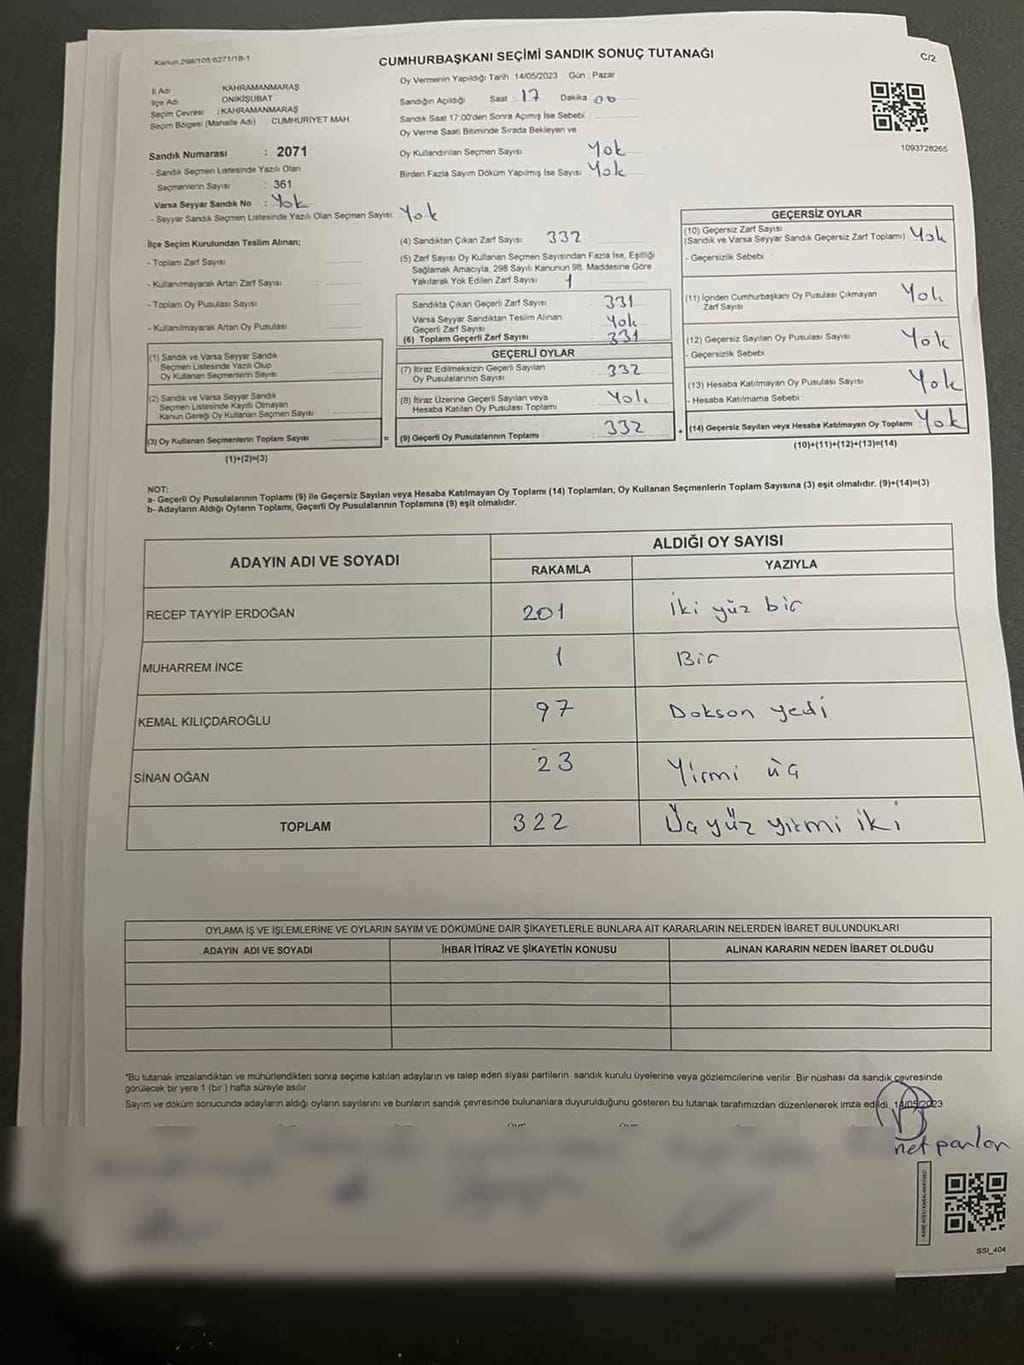 Kanun 298/105,6271/18-1
CUMHURBAŞKANI SEÇİMİ SANDIK SONUÇ TUTANAĞI
C/2
İl Adı KAHRAMANMARAŞ
İlçe Adı ONİKİŞUBAT
Seçim Çevresi : KAHRAMANMARAŞ
Seçim Bölgesi (Mahalle Adı) CUMHURİYET MAH
Sandık Numarası : 2071
- Sandık Seçmen Listesinde Yazılı Olan
Seçmenlerin Sayısı : 361
Varsa Seyyar Sandık No : Yok
- Seyyar Sandık Seçmen Listesinde Yazılı Olan Seçmen Sayısı: Yok
Oy Vermenin Yapıldığı Tarih : 14/05/2023 Gün : Pazar
Sandığın Açıldığı Saat 17 Dakika 00
Sandık Saat 17:00'den Sonra Açımış İse Sebebi :
Oy Verme Saati Bitiminde Sırada Bekleyen ve
Oy Kullandırılan Seçmen Sayısı Yok
Birden Fazla Sayım Döküm Yapılmış İse Sayısı Yok
1093728265
İlçe Seçim Kurulundan Teslim Alınan;
- Toplam Zarf Sayısı :
- Kullanılmayarak Artan Zarf Sayısı :
- Toplam Oy Pusulası Sayısı :
- Kullanılmayarak Artan Oy Pusulası :
(1) Sandık ve Varsa Seyyar Sandık
Seçmen Listesinde Yazılı Olup
Oy Kullanan Seçmenlerin Sayısı
(2) Sandık ve Varsa Seyyar Sandık
Seçmen Listesinde Kayıtlı Olmayan
Kanun Gereği Oy Kullanan Seçmen Sayısı
(3) Oy Kullanan Seçmenlerin Toplam Sayısı =
(1)+(2)=(3)
(4) Sandıktan Çıkan Zarf Sayısı : 332
(5) Zarf Sayısı Oy Kullanan Seçmen Sayısından Fazla İse, Eşitliği
Sağlamak Amacıyla, 298 Sayılı Kanunun 98. Maddesine Göre
Yakılarak Yok Edilen Zarf Sayısı : 1
Sandıkta Çıkan Geçerli Zarf Sayısı 331
Varsa Seyyar Sandıktan Teslim Alınan
Geçerli Zarf Sayısı Yok
(6) Toplam Geçerli Zarf Sayısı 331
GEÇERLİ OYLAR
(7) İtiraz Edilmeksizin Geçerli Sayılan
Oy Pusulalarının Sayısı 332
(8) İtiraz Üzerine Geçerli Sayılan veya
Hesaba Katılan Oy Pusulası Toplamı Yok
(9) Geçerli Oy Pusulalarının Toplamı 332 +
GEÇERSİZ OYLAR
(10) Geçersiz Zarf Sayısı
(Sandık ve Varsa Seyyar Sandık Geçersiz Zarf Toplamı) Yok
- Geçersizlik Sebebi :
(11) İçinden Cumhurbaşkanı Oy Pusulası Çıkmayan
Zarf Sayısı Yok
(12) Geçersiz Sayılan Oy Pusulası Sayısı Yok
- Geçersizlik Sebebi :
(13) Hesaba Katılmayan Oy Pusulası Sayısı Yok
- Hesaba Katılmama Sebebi :
(14) Geçersiz Sayılan veya Hesaba Katılmayan Oy Toplamı Yok
(10)+(11)+(12)+(13)=(14)
NOT:
a- Geçerli Oy Pusulalarının Toplamı (9) ile Geçersiz Sayılan veya Hesaba Katılmayan Oy Toplamı (14) Toplamları, Oy Kullanan Seçmenlerin Toplam Sayısına (3) eşit olmalıdır. (9)+(14)=(3)
b- Adayların Aldığı Oyların Toplamı, Geçerli Oy Pusulalarının Toplamına (9) eşit olmalıdır.
ADAYIN ADI VE SOYADI
ALDIĞI OY SAYISI
RAKAMLA YAZIYLA
RECEP TAYYİP ERDOĞAN 201 İki yüz bir
MUHARREM İNCE 1 Bir
KEMAL KILIÇDAROĞLU 97 Dokson yedi
SİNAN OĞAN 23 Yirmi üç
TOPLAM 322 Üç yüz yirmi iki
OYLAMA İŞ VE İŞLEMLERİNE VE OYLARIN SAYIM VE DÖKÜMÜNE DAİR ŞİKAYETLERLE BUNLARA AİT KARARLARIN NELERDEN İBARET BULUNDUKLARI
ADAYIN ADI VE SOYADI İHBAR İTİRAZ VE ŞİKAYETİN KONUSU ALINAN KARARIN NEDEN İBARET OLDUĞU
"Bu tutanak imzalandıktan ve mühürlendikten sonra seçime katılan adayların ve talep eden siyasi partilerin sandık kurulu üyelerine veya gözlemcilerine verilir. Bir nüshası da sandık çevresinde
görülecek bir yere 1 (bir ) hafta süreyle asılır.
Sayım ve döküm sonucunda adayların aldığı oyların sayılarını ve bunların sandık çevresinde bulunanlara duyurulduğunu gösteren bu tutanak tarafımızdan düzenlenerek imza edildi. 14/05/2023
net parlor
SSI_404